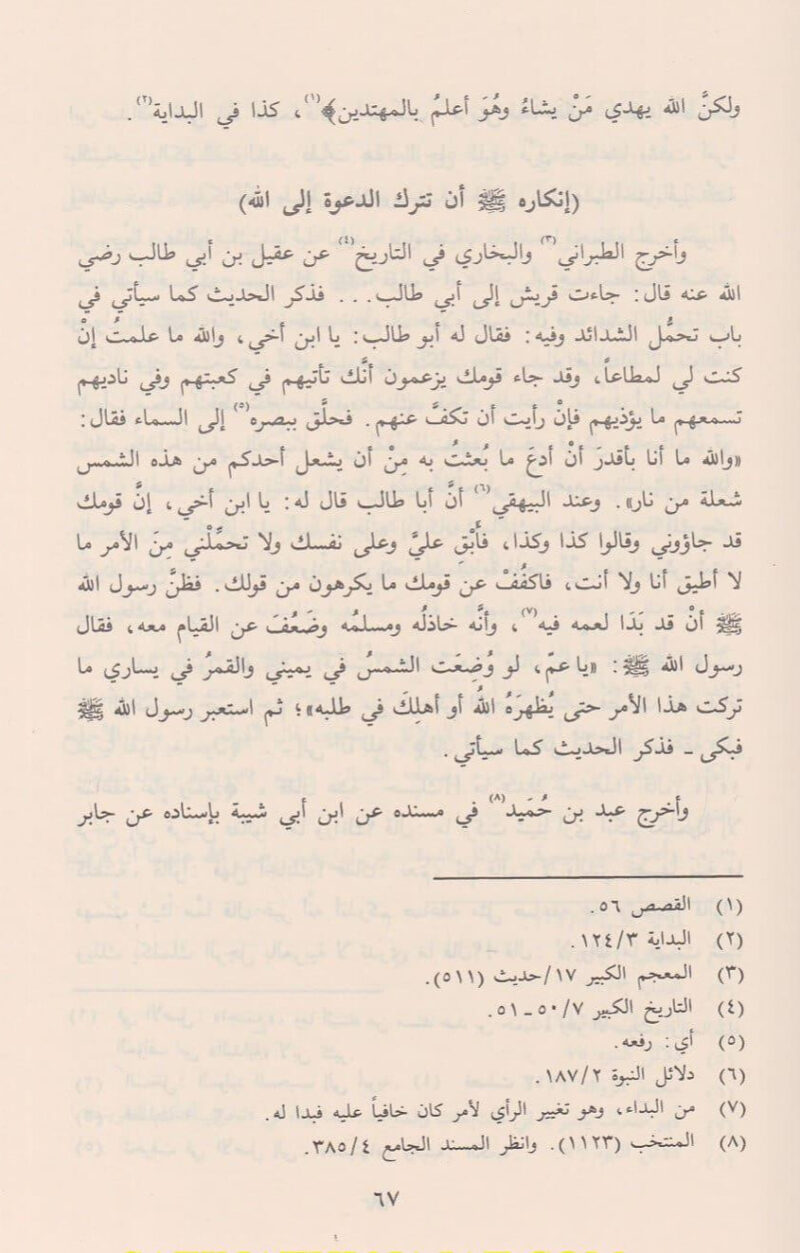 ولكنَّ الله يهدي مَنْ يشاءُ وهُوَ أعلمُ بالمهتدين﴾(١)، كذا في البداية(٢).
(إنكاره ﷺ أن تترك الدعوة إلى الله)
وأخرج الطبراني(٣) والبخاري في التاريخ(٤) عن عقيل بن أبي طالب رضي
الله عنه قال: جاءت قريش إلى أبي طالب. . . فذكر الحديث كما سيأتي في
باب تحمُّل الشدائد وفيه: فقال له أبو طالب: يا ابن أخي، والله ما علمتُ إنْ
كنت لي لمطاعاً، وقد جاء قومك يزعمون أنَّك تأتيهم في كعبتهم وفي ناديهم
تسمعهم ما يؤذيهم فإنْ رأيت أن تكفَّ عنهم. فحلَّق ببصره(٥) إلى السماء فقال:
«والله ما أنا بأقدرَ أنْ أدعَ ما بُعثتُ به مِنْ أن يشعل أحدكم من هذه الشمس
شعلة من نار». وعند البيهقي(٦) أنَّ أبا طالب قال له: يا ابن أخي، إنَّ قومك
قد جاؤوني وقالوا كذا وكذا، فأَبْقِ عليَّ وعلى نفسك ولا تحمِّلْني مِنَ الأمر ما
لا أطيق أنا ولا أنت، فاكفُفْ عن قومك ما يكرهون من قولك. فظنَّ رسول الله
ﷺ أنْ قد بَدَا لعمه فيه(٧)، وأنَّه خاذلُه ومسلمُه وضَعُفَ عن القيام معه، فقال
رسول الله ﷺ: «يا عمّ، لو وُضِعَت الشمسُ في يميني والقمرُ في يساري ما
تركت هذا الأمر حتى يُظهِرَهُ اللهُ أو أهلِكَ في طلبه»؛ ثم استعبر رسول الله ﷺ
فبكى ـ فذكر الحديث كما سيأتي.
وأخرج عبد بن حُمَيد(٨) في مسنده عن ابن أبي شيبة بإسناده عن جابر
(١) القصص ٥٦.
(٢) البداية ١٢٤/٣.
(٣) المعجم الكبير ١٧/حديث (٥١١).
(٤) التاريخ الكبير ٥٠/٧ ـ ٥١.
(٥) أي: رفعه.
(٦) دلائل النبوة ١٨٧/٢.
(٧) من البداء، وهو تغيير الرأي لأمر كان خافياً عليه فبدا له.
(٨) المنتخب (١١٢٣). وانظر المسند الجامع ٣٨٥/٤.
٦٧